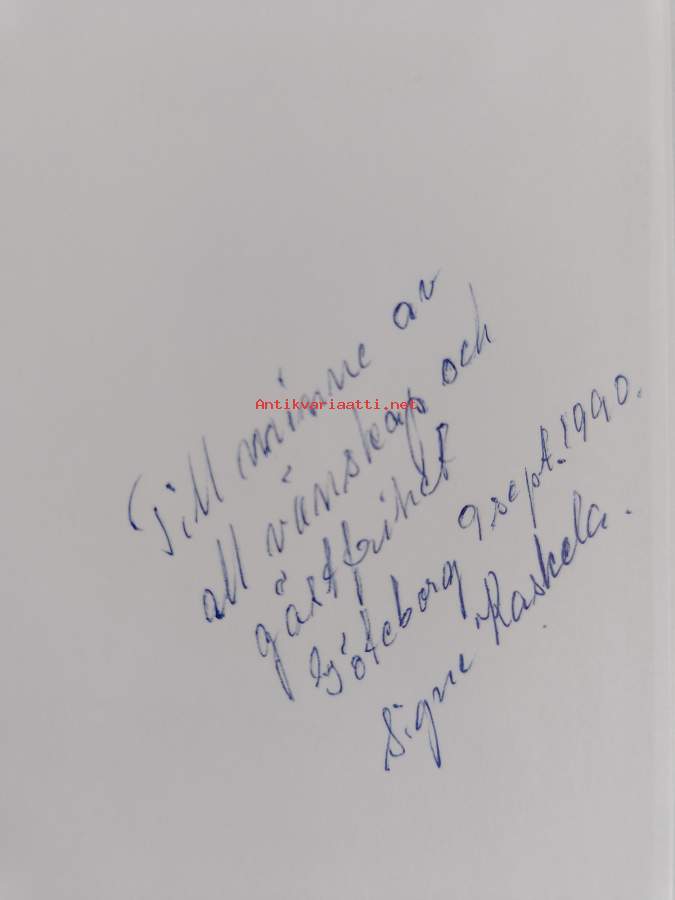 Till minne av
all vänskap och
gästfrihet
Göteborg 9 sept. 1990.
Signe Raskela.
Antikvariaatti.net